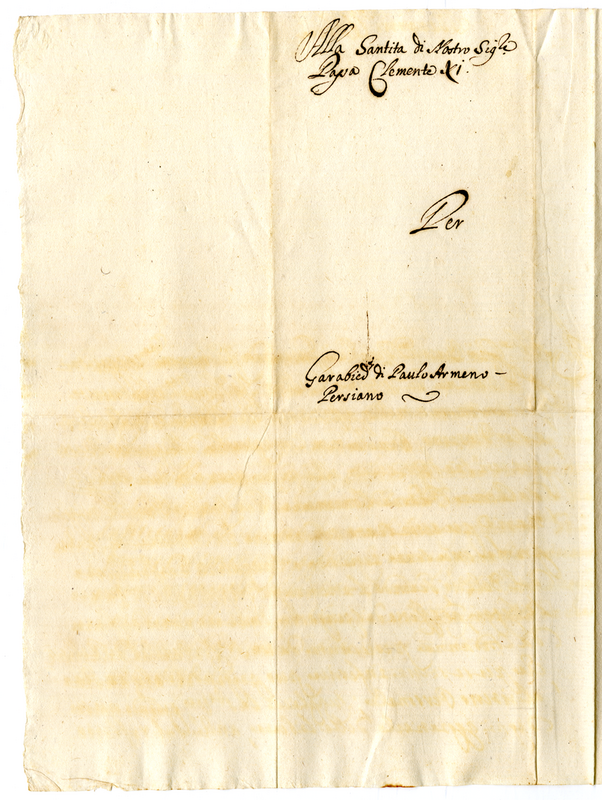 Alla Santita di Nostro Sig.re
Papa Clemente XI.
Per
Garabied di Paulo Armeno –
Persiano